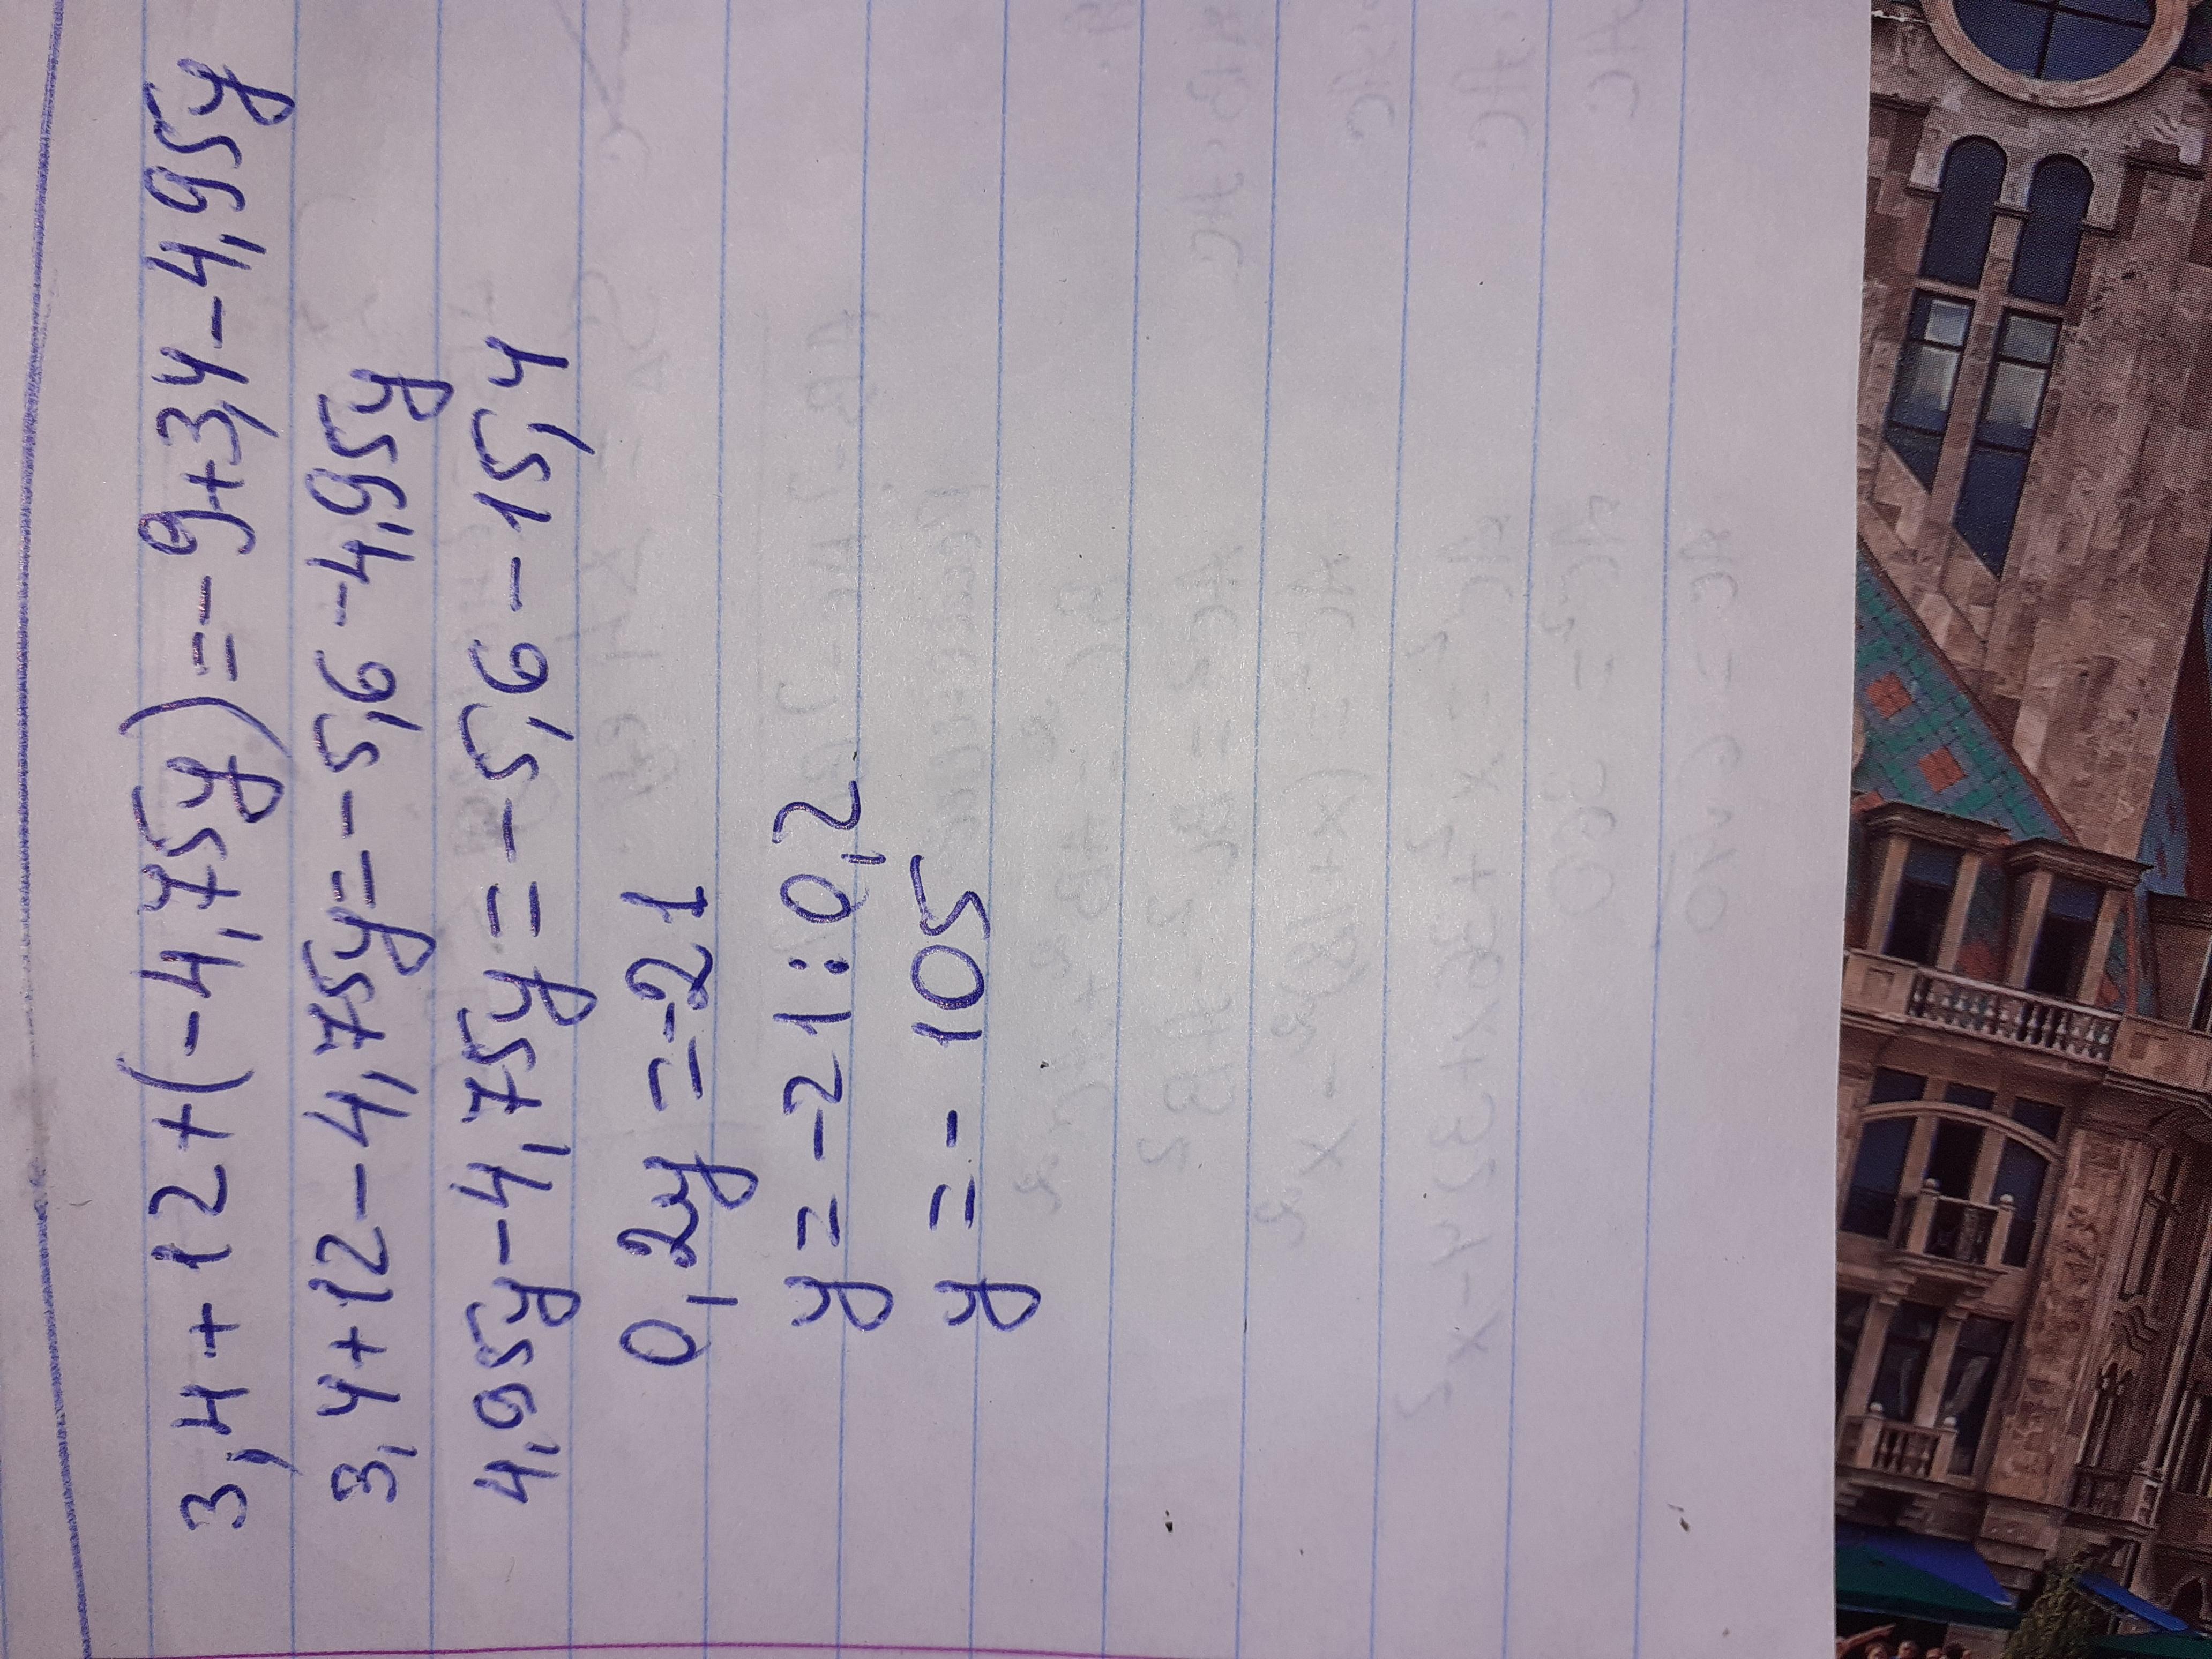 3,4+12+(-4,75y)=-9+3,4-4,95y
3,4+12-4,75y=-5,6-4,95y
4,95y-4,75y=-5,6-15,4
0,2y=-21
y=-21:0,2
y=-105